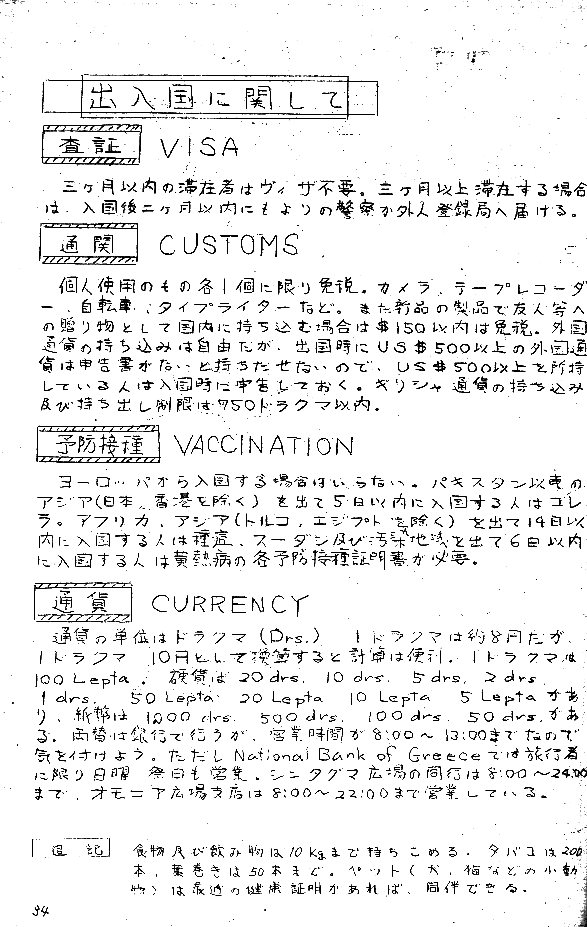 出入国に関して
査証 VISA
三ヶ月以内の滞在者はヴィザ不要。三ヶ月以上滞在する場合
は、入国後二ヶ月以内にもよりの警察か外人登録局へ届ける。
通関 CUSTOMS
個人使用のもの各1個に限り免税。カメラ、テープレコーダ
ー、自転車、タイプライターなど。また新品の製品で友人等へ
の贈り物として国内に持ち込む場合は$150以内は免税。外国
通貨の持ち込みは自由だが、出国時にUS$500以上の外国通
貨は申告書がないと持ちだせないので、US$500以上を所持
している人は入国時に申告しておく。ギリシャ通貨の持ち込み
及び持ち出し制限は750ドラクマ以内。
予防接種 VACCINATION
ヨーロッパから入国する場合はいらない。パキスタン以東の
アジア(日本、香港を除く)を出て5日以内に入国する人はコレ
ラ。アフリカ、アジア(トルコ、エジプトを除く)を出て14日以
内に入国する人は種痘、スーダン及び汚染地域を出て6日以内
に入国する人は黄熱病の各予防接種証明書が必要。
通貨 CURRENCY
通貨の単位はドラクマ(Drs.) 1ドラクマは約8円だが、
1ドラクマ 10円として換算すると計算は便利。1ドラクマは
100 Lepta。硬貨は 20drs. 10drs. 5drs. 2drs.
1drs. 50 Lepta 20 Lepta 10 Lepta 5 Leptaがあ
り、紙幣は 1000 drs. 500 drs. 100 drs. 50 drs.があ
る。両替は銀行で行うが、営業時間が8:00〜13:00までなので
気を付けよう。ただしNational Bank of Greeceでは旅行者
に限り日曜 祭日も営業。シンタグマ広場の同行は8:00〜24:00
まで、オモニア広場支店は8:00〜22:00まで営業している。
追記 食物及び飲み物は10Kgまで持ちこめる。タバコは200
本、葉巻きは50本まで。ペット(犬、猫などの小動
物)は最近の健康証明があれば、同伴できる。
34